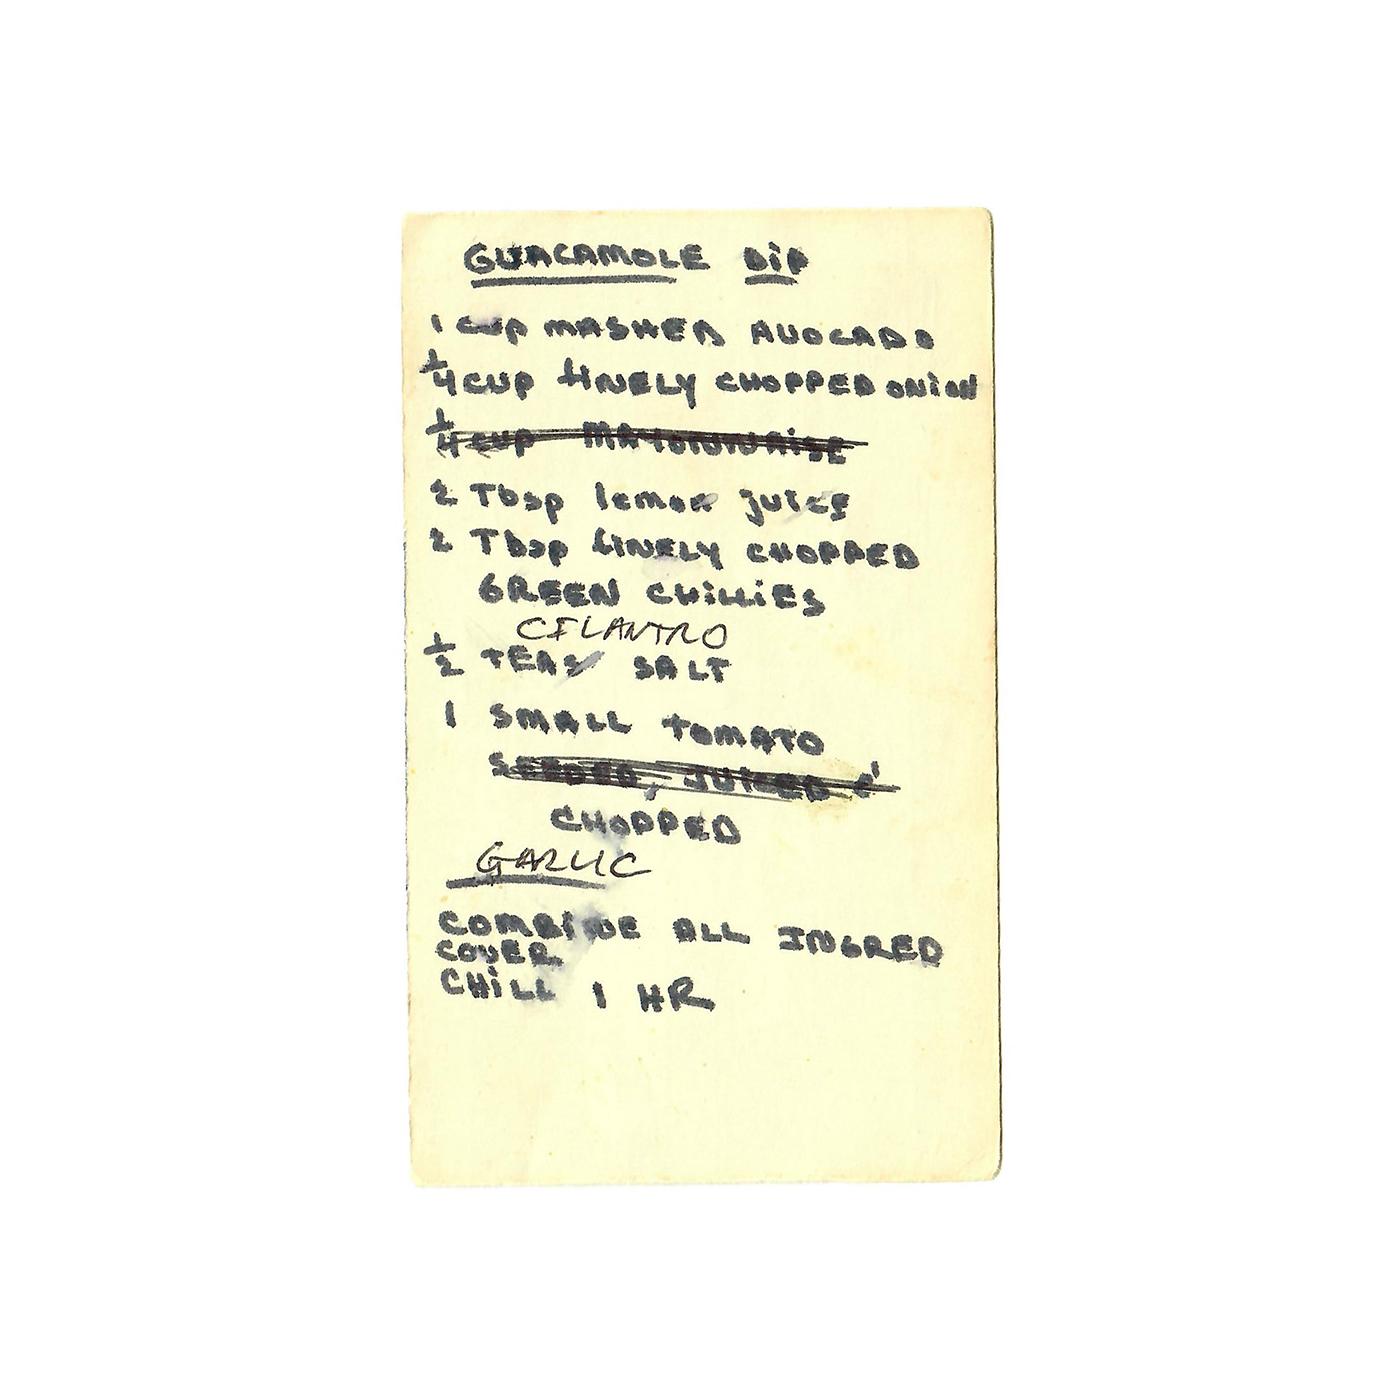 GUACAMOLE DiP
1 cup MASHED AVOCADO
1/4 CUP fiNELY CHOPPED ONiON
1/4 cup MAYONNAiSE
2 Tbsp lemon juice
2 Tbsp fiNELY CHOPPED
GREEN CHiLLiES
CILANTRO
1/2 TEAS SALT
1 SMALL TOMATO
SEEDED, JUICED &
CHOPPED
GARLIC
COMBiNE ALL INGRED
COVER
CHiLL 1 HR